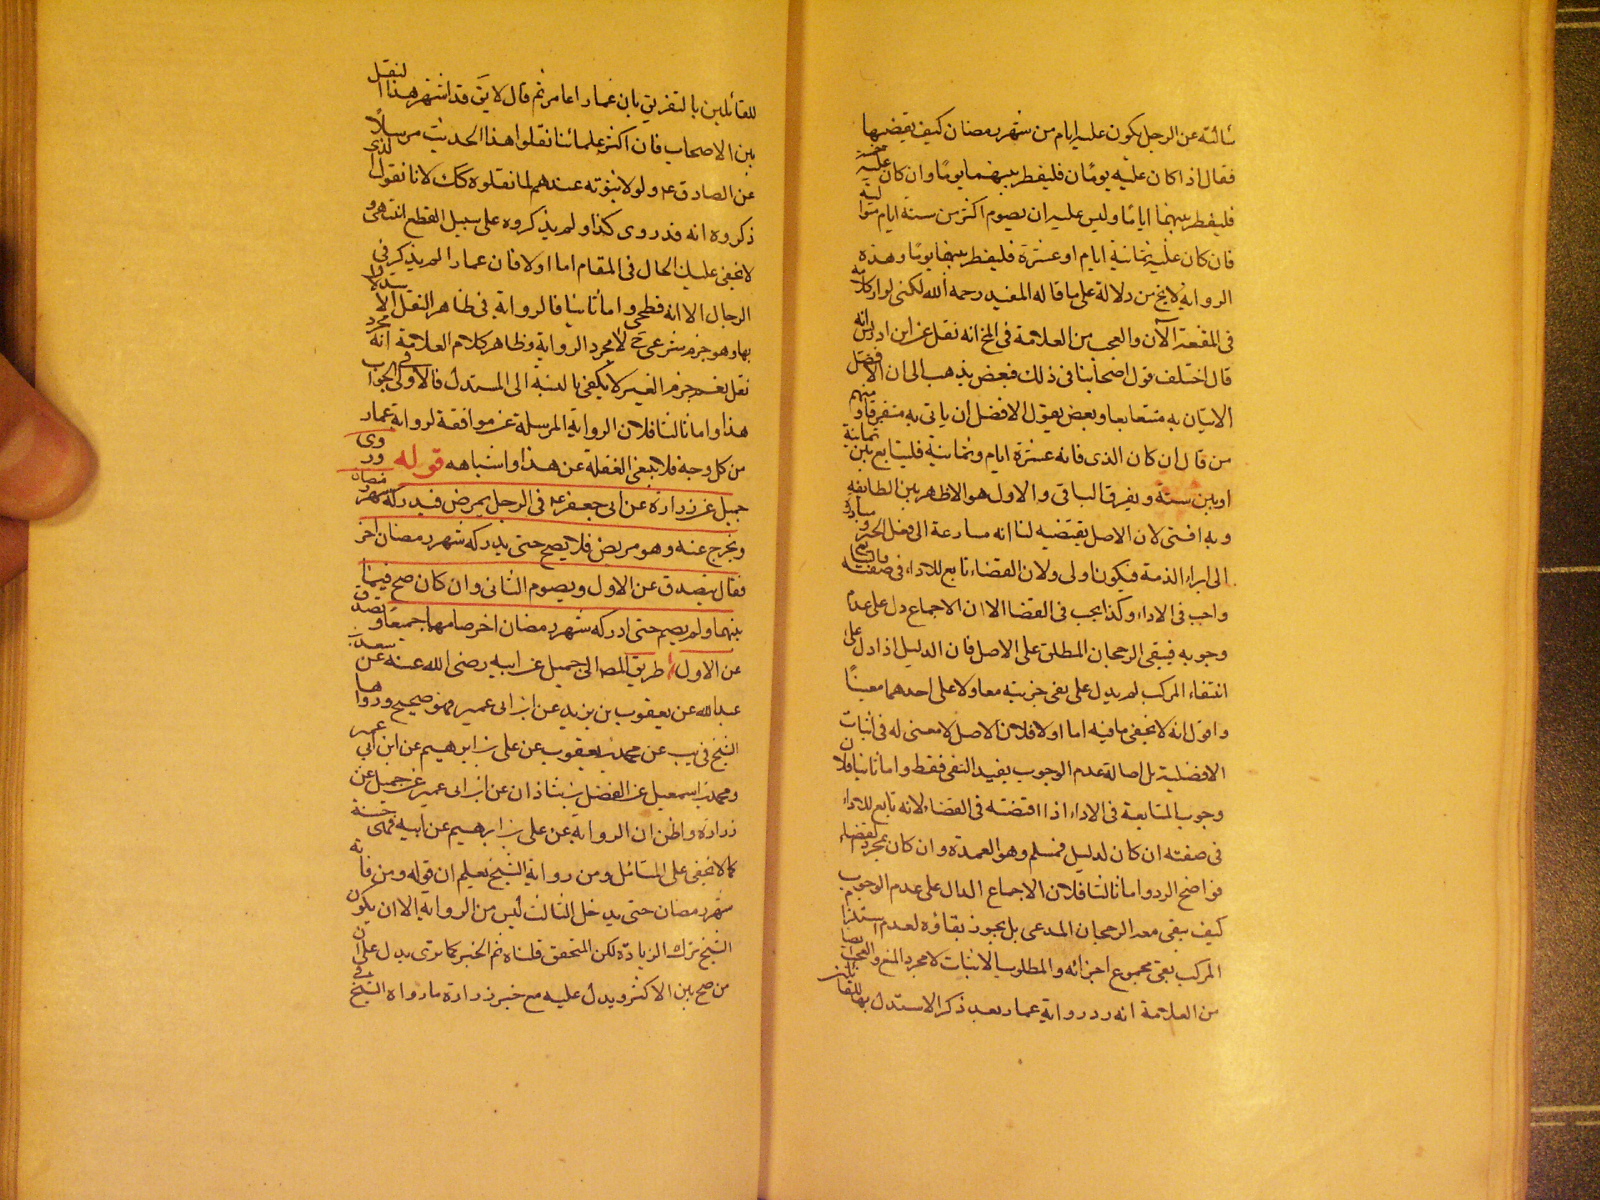 سألته عن الرجل يكون عليه ايام من شهر رمضان كيف يقضيها
فقال اذا كان عليه يومان فليفطر بينهما يومًا وان كان عليه خمسة
فليفطر بينهما ايامًا وليس عليه ان يصوم اكثر من ستة ايام متوالية
فان كان عليه ثمانية ايام او عشرة فليفطر بينهما يومًا وهذه
الرواية لا يخ من دلالة على ما قاله المفيد رحمه الله لكنى لم ار كلامه
فى المقنعة الآن والعجب من العلامة فى المخ انه نقل عن ابن ادريس انه
قال اختلف قول اصحابنا فى ذلك فبعض يذهب الى ان الافضل
الاتيان به متتابعا وبعض يقول الافضل ان ياتى به متفرقا ومنهم
من قال ان كان الذى فاته عشرة ايام وثمانية فليتابع بين ثمانية
او بين ستة ويفرق الباقى والاول هو الاظهر بين الطايفة
وبه افتى لان الاصل يقتضيه لنا انه مسارعة الى فعل الخير ومبادرة
الى ابراء الذمة فيكون اولى ولان القضاء تابع للاداء فى صفته والتتابع
واجب فى الاداء وكذا يجب فى القضا الا ان الاجماع دل على عدم
وجوبه فيبقى الرجحان المطلق على الاصل فان الدليل اذا دل على
انتفاء المركب لم يدل على نفى جزئيه معا ولا على احدهما معينًا
واقول انه لا يخفى ما فيه اما اولا فلان الاصل لا معنى له فى اثبات
الافضلية بل اصالة عدم الوجوب يفيد النفى فقط واما ثانيا فلان
وجوب المتابعة فى الاداء اذا اقتضته فى القضاء لانه تابع للاداء
فى صفته ان كان لدليل فمسلم وهو العمدة وان كان بمجرد القضاء
فواضح الرد واما ثالثا فلان الاجماع الدال على عدم الوجوب
كيف يبقى معه الرجحان المدعى بل يجوز بقاؤه لعدم استلزام
المركب نفى مجموع اجزائه والمطلوب الاثبات لا مجرد المنع والعجب ايضا
من العلامة انه رد رواية عمار بعد ذكر الاستدلال بها للقائلين
للقائلين بالتفريق بان عمارا عامر ثم قال لا يق قد اشتهر هذا النقل
بين الاصحاب فان اكثر علمائنا نقلوا هذا الحديث مرسلًا
عن الصادق ع ولولا ثبوته عندهم لما نقلوه كك لانا نقول الذى
ذكروه انه قد روى كذا ولم يذكروه على سبيل القطع انتهى و
لا يخفى عليك الحال فى المقام اما اولا فان عمارا لم يذكر فى
الرجال الا انه فطحى واما ثانيا فالرواية فى ظاهر النقل الاستدلال
بها وهو جزم شرعى ح لا مجرد الرواية وظاهر كلام العلامة انه مجرد
نقل نعم جزم الغير لا يكفى بالنسبة الى المستدل فالاولى فى الجواب
هذا واما ثالثا فلان الرواية المرسلة غير موافقة لرواية عمار
من كل وجه فلا ينبغى الغفلة عن هذا واشباهه قوله وروى
جميل عن زرارة عن ابى جعفر ع فى الرجل يمرض فيدركه شهر رمضان
ويخرج عنه وهو مريض فلا يصح حتى يدركه شهر رمضان اخر
فقال يتصدق عن الاول ويصوم الثانى وان كان صح فيما
بينهما ولم يصم حتى ادركه شهر رمضان اخر صامهما جميعا وتصدق
عن الاول طريق المص الى جميل عن ابيه رضى الله عنه عن سعد بن
عبد الله عن يعقوب بن يزيد عن ابن ابى عمير فهو صحيح ورواها
الشيخ فى يب عن محمد بن يعقوب عن على بن ابرهيم عن ابن ابى عمير
ومحمد بن اسمعيل عن الفضل بن شاذان عن ابن ابى عمير عن جميل عن
زرارة واظن ان الرواية عن على بن ابرهيم عن ابيه فهى حسنة
كما لا يخفى على المتأمل ومن رواية الشيخ يعلم ان قوله ومن فاته
شهر رمضان حتى يدخل الثالث ليس من الرواية الا ان يكون
الشيخ ترك الزيادة لكن المتحقق قلناه ثم الخبر كما ترى يدل على ان
من صح بين الاكثر ويدل عليه مع خبر زرارة ما رواه الشيخ فى